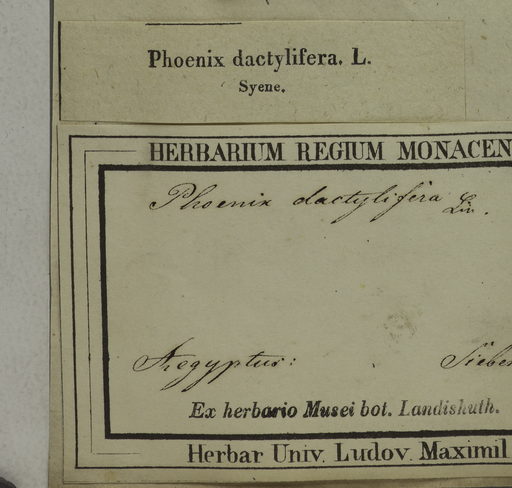 Phoenix dactylifera. L.
Syene.
HERBARIUM REGIUM MONACEN
Phoenix dactylifera Lin.
Aegyptus: Sieber
Ex herbario Musei bot. Landishuth.
Herbar Univ. Ludov. Maximil